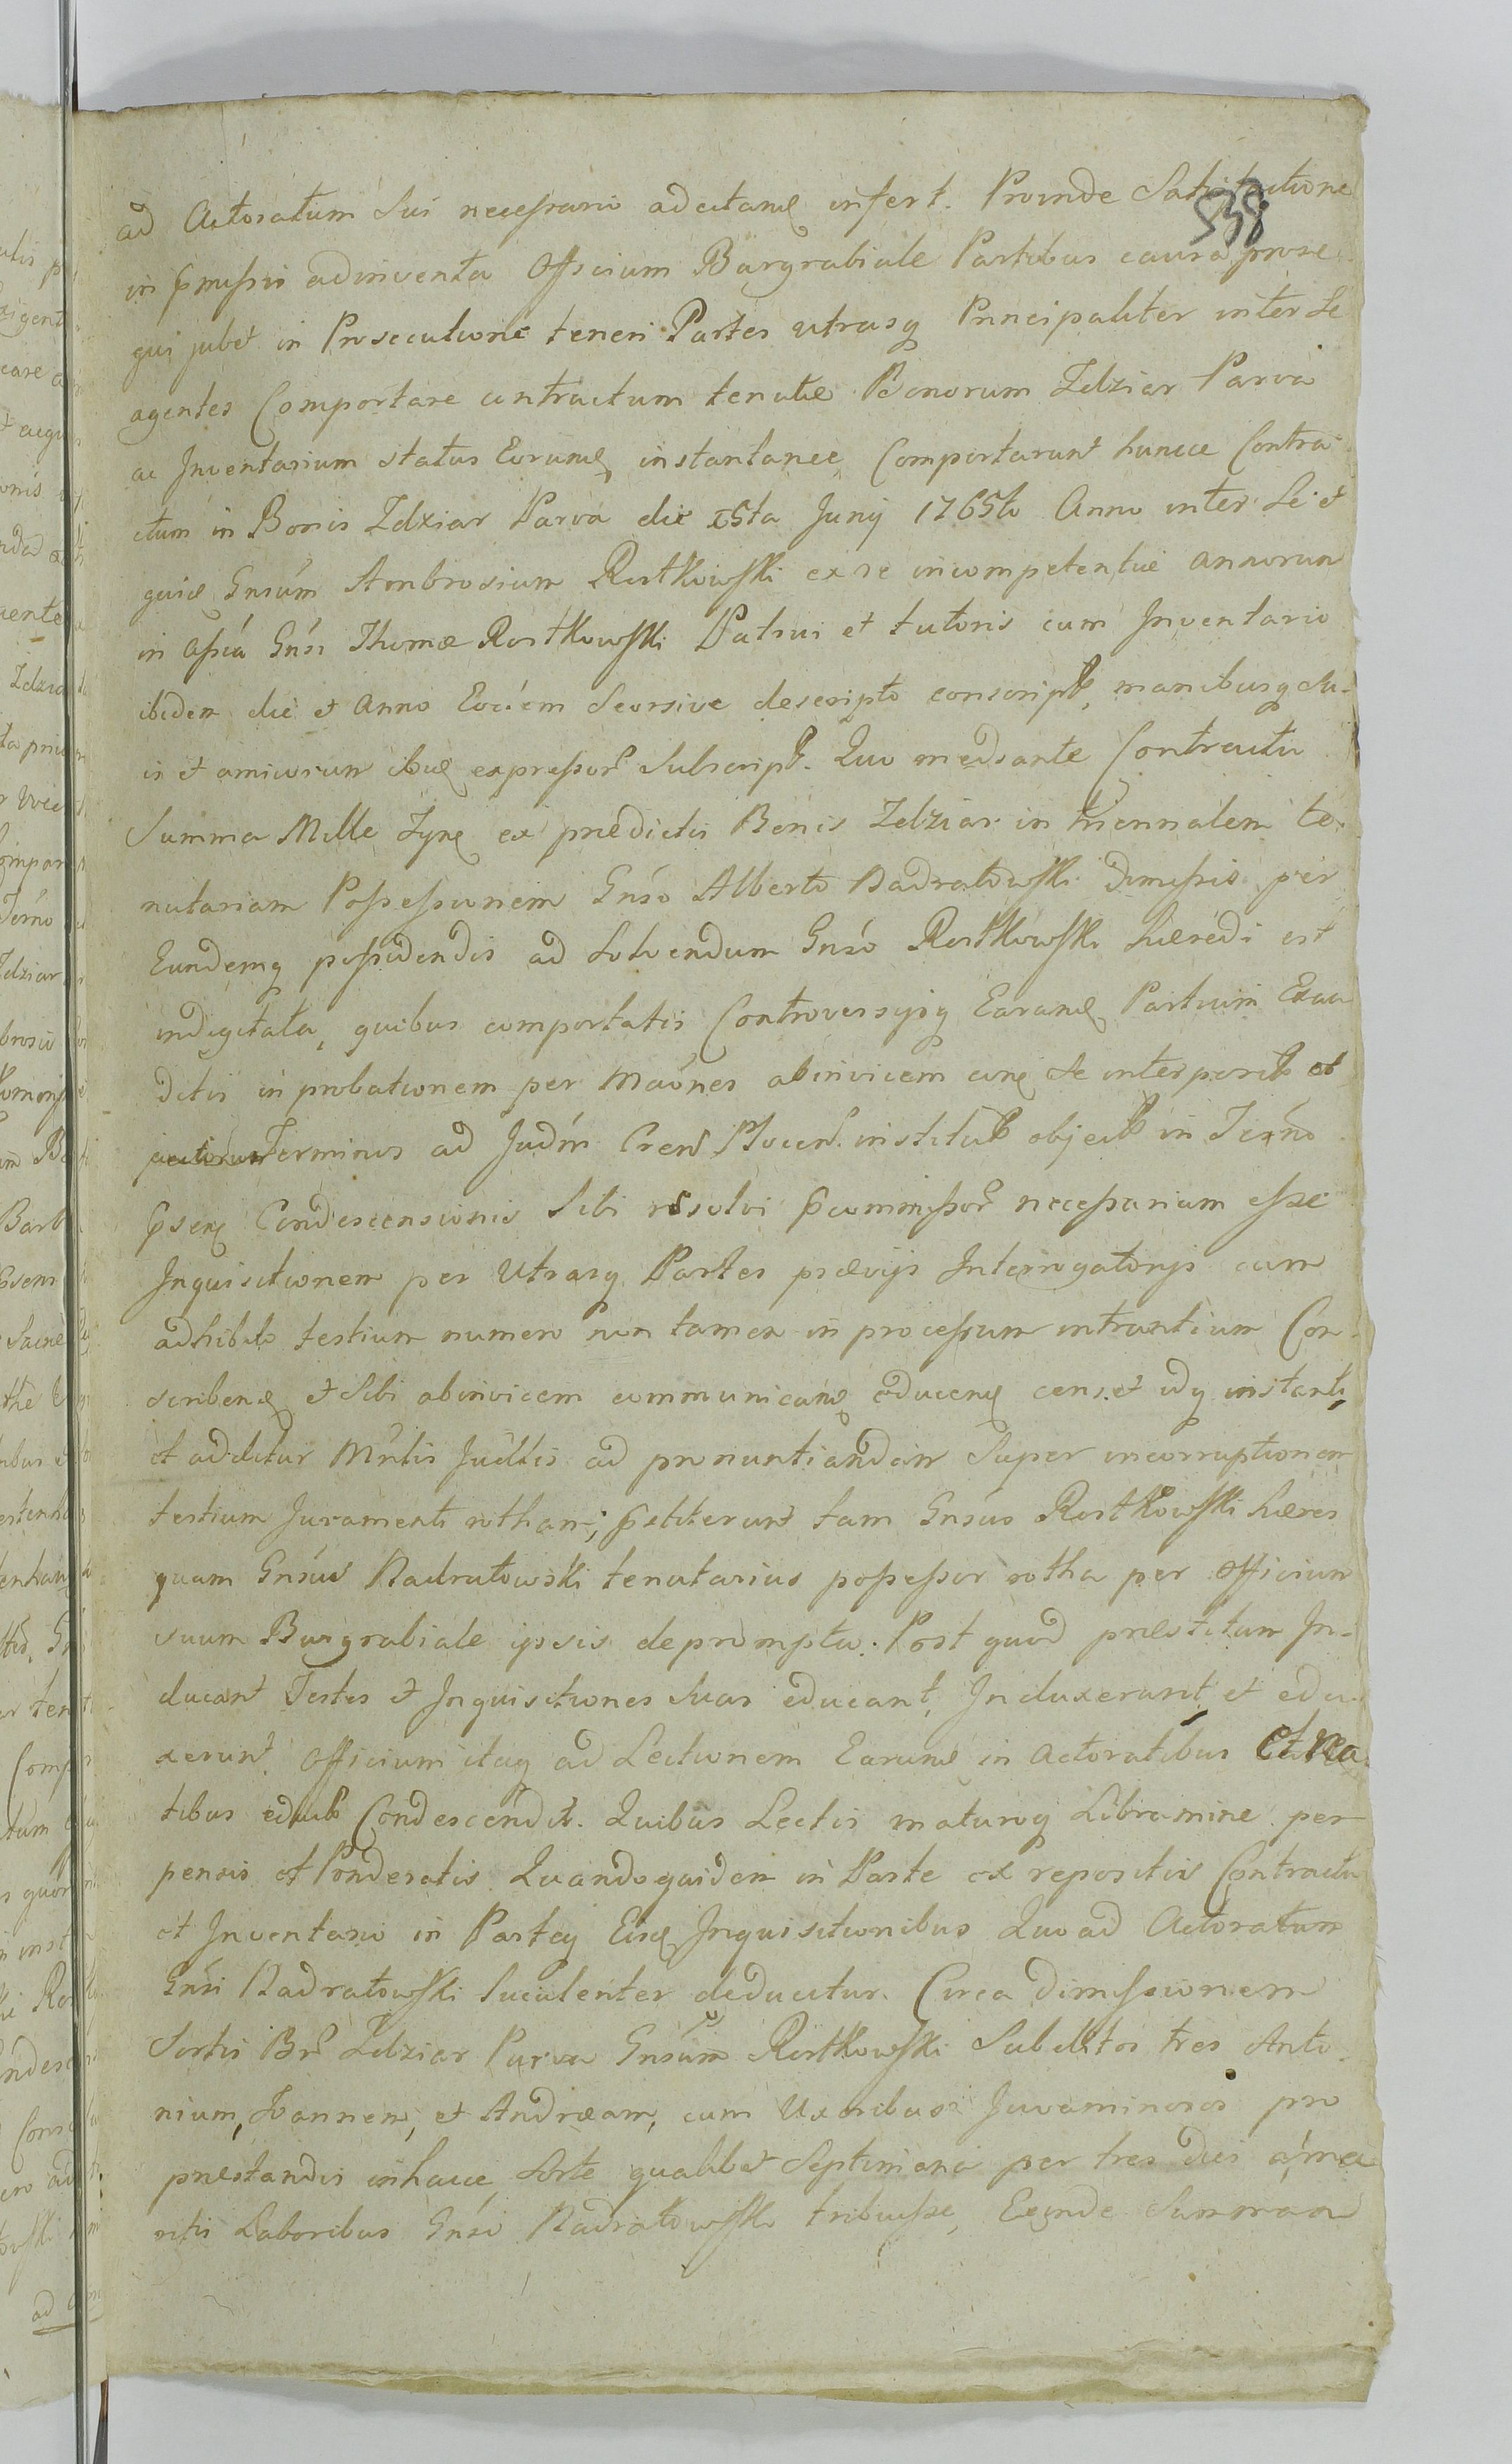 538
ad Actoratum Sui necessario adcitand infert. Proinde Satis
in pmissis adinventa Officium Burgrabiale Partibus causa prose
qui jubet in Prosecutione teneri Partes utrasq Principaliter inter Se
agentes Comportare contractum tenutæ Bonorum Zdziar Parva
ac Inventarium status Eorumd, instantanee Comportarunt huncce Contra
ctum in Bonis Zdziar Parva die 25ta Junij 1765to Anno inter Se et
Gnsum Ambrosium Rostkowski ex re incompetentiæ annorum
in assia Gnsi Thomæ Rostkowski Patrui et tutoris cum Inventario
ibidem die et Anno Eodem Seorsive descripto conscript, manibusq Su-
is et amicorum expressor Subscript. Quo mediante Contractu
Summa Mille Tynf ex prædictis Bonis Zdziar in triennalem te-
nutariam Possessionem Gnso Alberto Nadratowski dimissis per
Eundemq possidendis ad Solvendum Gnso Rostkowski hæredi est
indigitata, quibus comportatis Controversijsq Earund Partium Exau
ditis in probationem per Maones abinvicem Se interposit et
Terminos ad Judm Cren Plocen. institut object in Termo
psenq Condescensionis Sibi resolvi necessarium esse
Inquisitionem per Utrasq Partes prævijs Interrogatorijs cum
adhibito testium numero non tamen in processum intrantium Con-
scribend et Sibi abinvicem communicand educend censet idq instanti,
et additur Mntis ad pronuntiandam Super incorruptionem
testium Juramenti rotham; petiterunt tam Gnsus Rostkowski hæres
quam Gnsus Nadratowski tenutarius possessor rotha per Officium
suum Burgrabiale ipsis deprompta. Post quod præstitum In-
ducant Testes et Inquisitiones Suas educant, Induxerunt et edu-
xerunt. Officium itaq ad Lectionem Earumd in Actoratibus et rea
tibus Condescendit. Quibus Lectis maturoq Libramine per
pensis et Ponderatis Quandoquidem in Parte ex repositis Contractu
et Inventario in Parteq Inquisitionibus Quoad Actoratum
Gnsi Nadratowski luculenter deducitur. Circa dimissionem
Sortis Br Zdziar Parva Gnsum Rostkowski Subditos tres Anto-
nium, Joannem, et Andræam, cum Uxoribus Juvaminosos pro
præstandis inhacce Sorte qualibet Septimana per tres dies
ritis Laboribus Gnso Nadratowski tribuisse, Exinde Summam